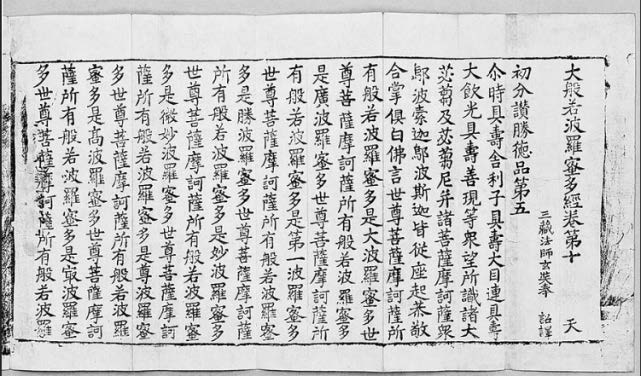 大般若波羅蜜多經卷第十 天
三藏法師玄奘奉 詔譯
初分讚勝德品第五
尒時具壽舍利子具壽大目連具壽
大飲光具壽善現等衆望所識諸大
苾芻及苾芻尼并諸菩薩摩訶薩衆
鄔波索迦鄔波斯迦皆從座起恭敬
合掌俱白佛言世尊菩薩摩訶薩所
有般若波羅蜜多是大波羅蜜多世
尊菩薩摩訶薩所有般若波羅蜜多
是廣波羅蜜多世尊菩薩摩訶薩所
有般若波羅蜜多是第一波羅蜜多
世尊菩薩摩訶薩所有般若波羅蜜
多是勝波羅蜜多世尊菩薩摩訶薩
所有般若波羅蜜多是妙波羅蜜多
世尊菩薩摩訶薩所有般若波羅蜜
多是微妙波羅蜜多世尊菩薩摩訶
薩所有般若波羅蜜多是尊波羅蜜
多世尊菩薩摩訶薩所有般若波羅
蜜多是高波羅蜜多世尊菩薩摩訶
薩所有般若波羅蜜多是㝡波羅蜜
多世尊菩薩摩訶薩所有般若波羅